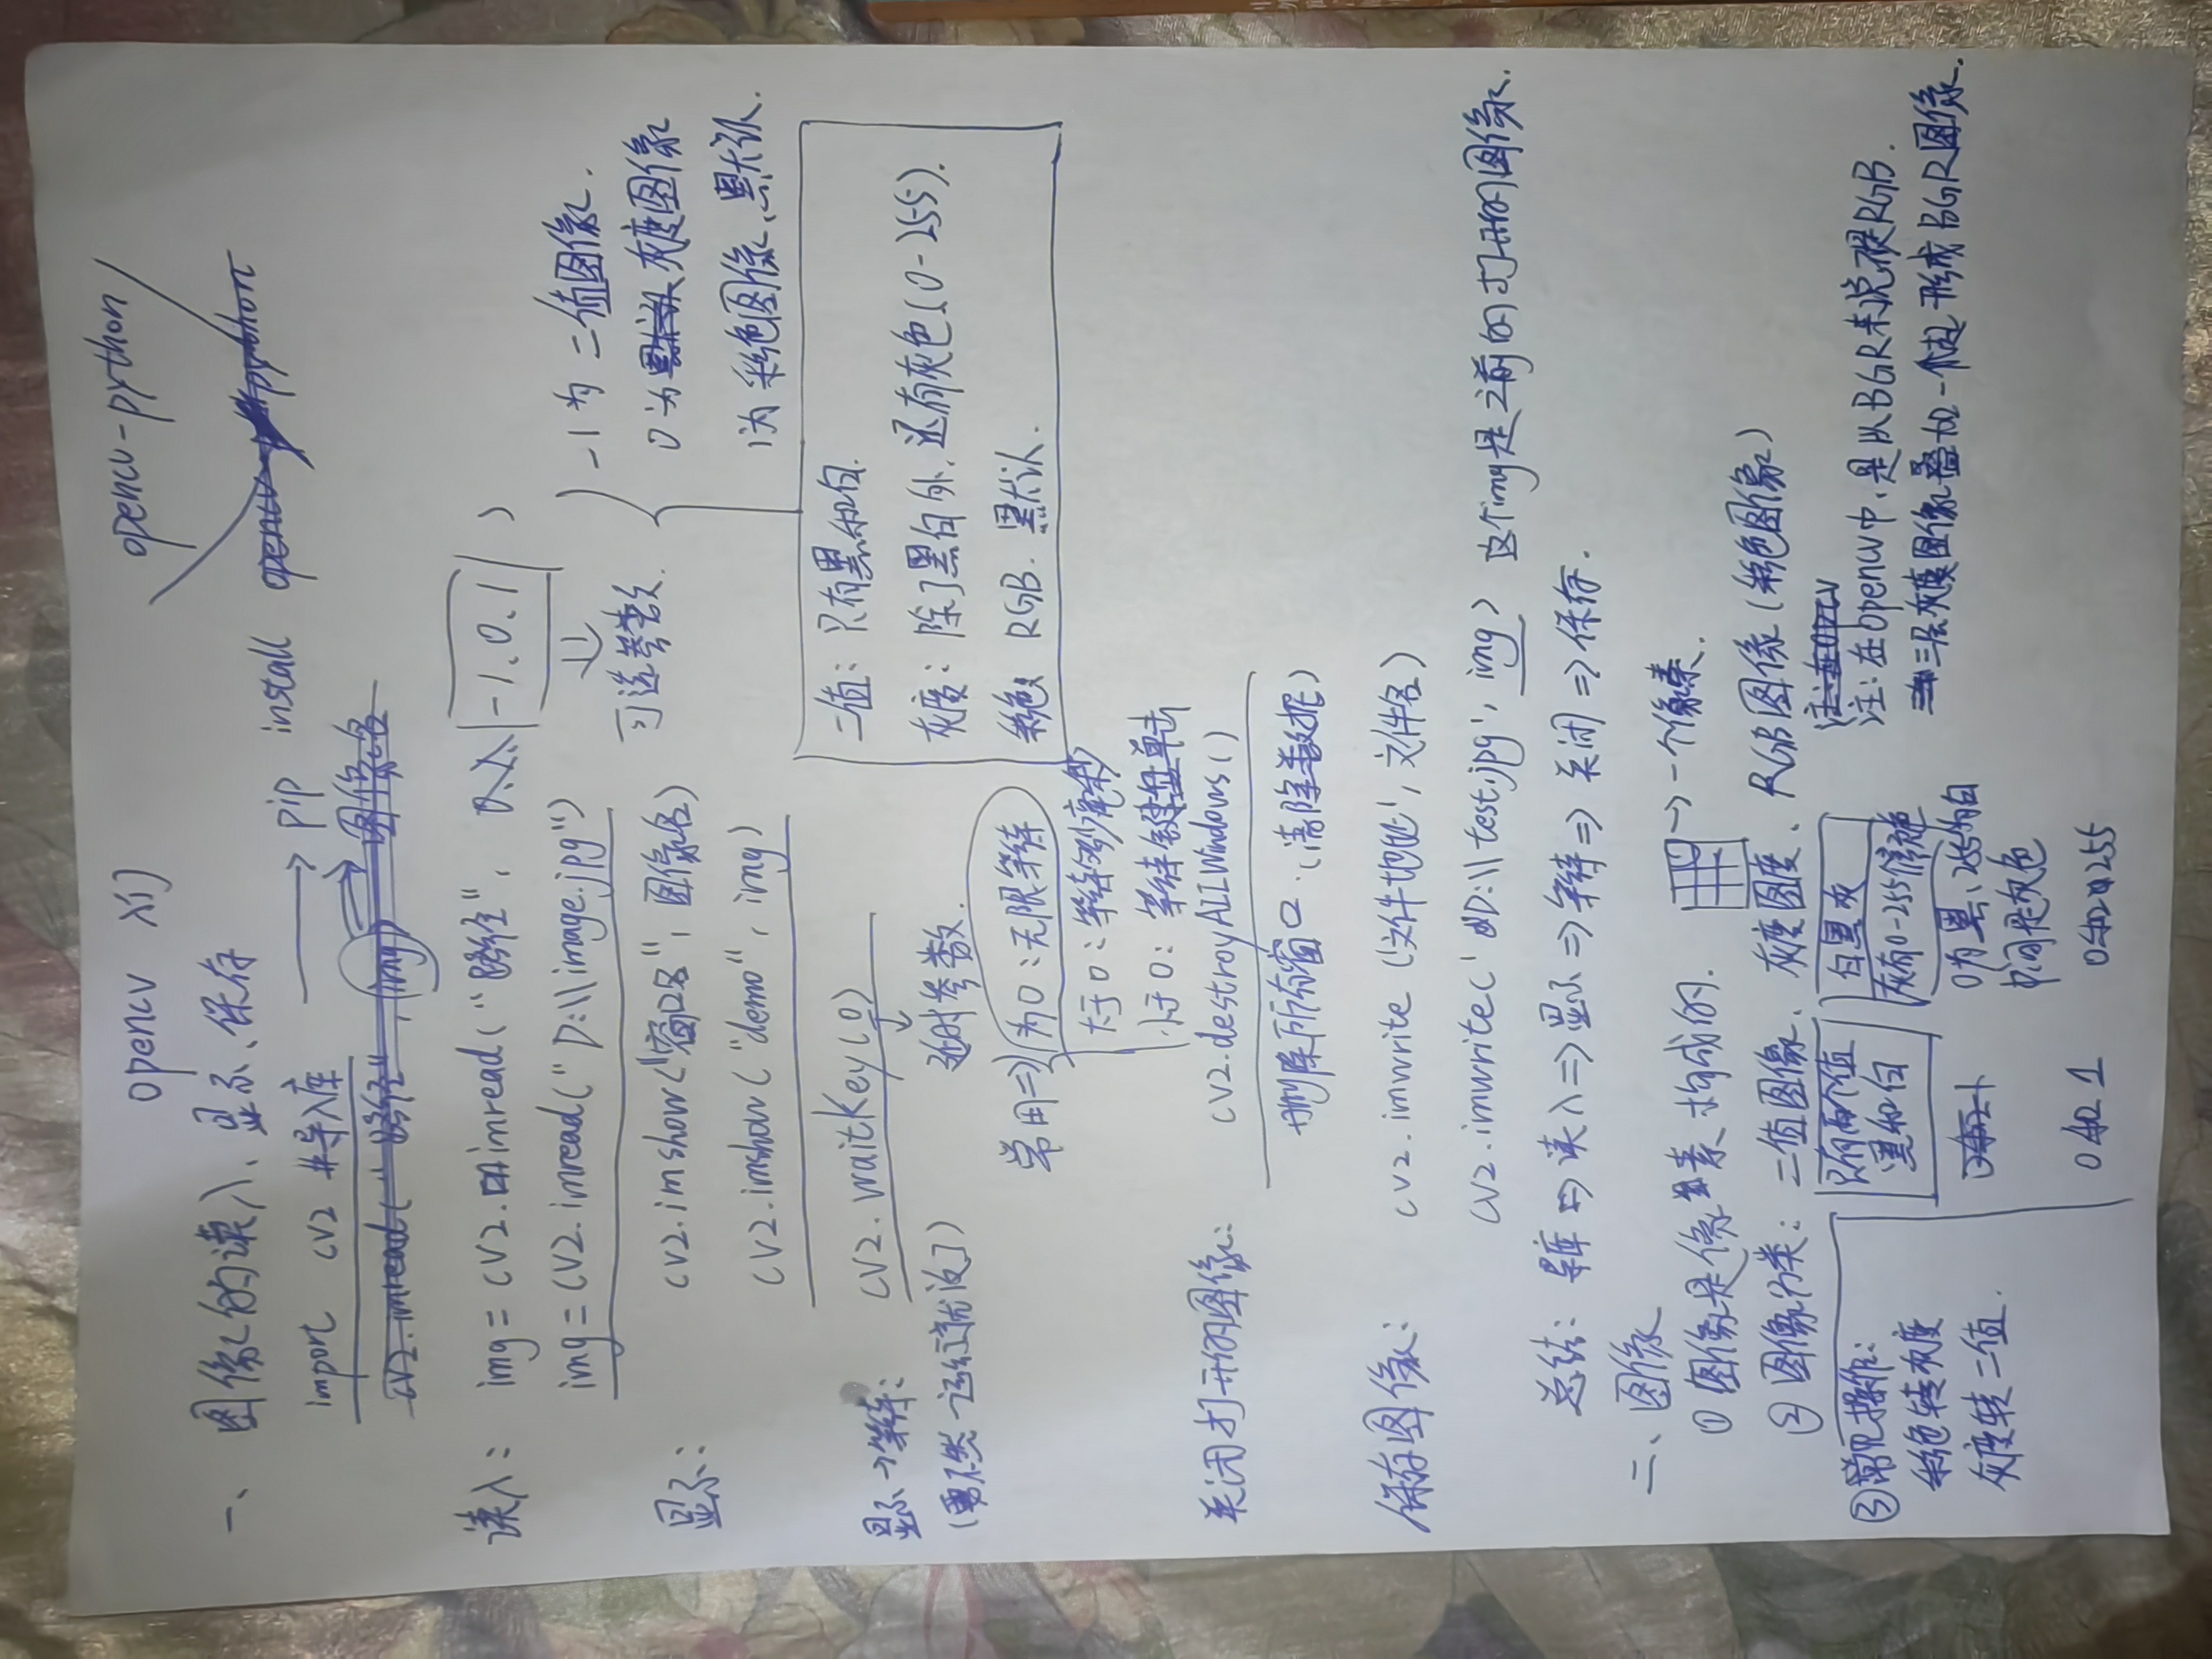 opencv 对
opencv-python
一、图像的读入、显示、保存
import cv2 #导入库 → pip install
cv2.imread("路径", img) 图像名
读入: img = cv2.imread("路径", -1.0.1)
可选参数
-1为二值图像.
0为默认灰度图像
1为彩色图像、默认.
img = cv2.imread("D:\\\image.jpg")
显示: cv2.imshow("窗口名", 图像名)
cv2.imshow("demo", img)
二值: 只有黑和白.
灰度: 除了黑白外, 还有灰色(0-255).
彩色: RGB. 默认.
显示→等待: cv2.waitKey(0)
(要不然一运行就没了)
延时参数.
常用⇒ 为0: 无限等待
大于0: 等待多少毫秒
小于0: 等待键盘单击
关闭打开的图像: cv2.destroyAllWindows()
删除所有窗口. (清除数据)
保存图像: cv2.imwrite('文件地址', 文件名)
cv2.imwrite('D:\\\test.jpg', img) 这个img是之前的打开的图像.
总结: 导库⇒读入⇒显示⇒等待⇒关闭⇒保存.
二、图像
① 图像是像素构成的. →一个像素.
② 图像分类: 二值图像、灰度图像、RGB图像(彩色图像)
只有两个值
黑和白
0和1
白黑灰
灰有0-255个
0为黑、255为白
中间是灰色
0和255
注: 在opencv
注: 在opencv中, 是从BGR来说不是RGB.
三层灰度图像叠加一起形成BGR图像.
③ 常见操作:
彩色转灰度
灰度转二值.